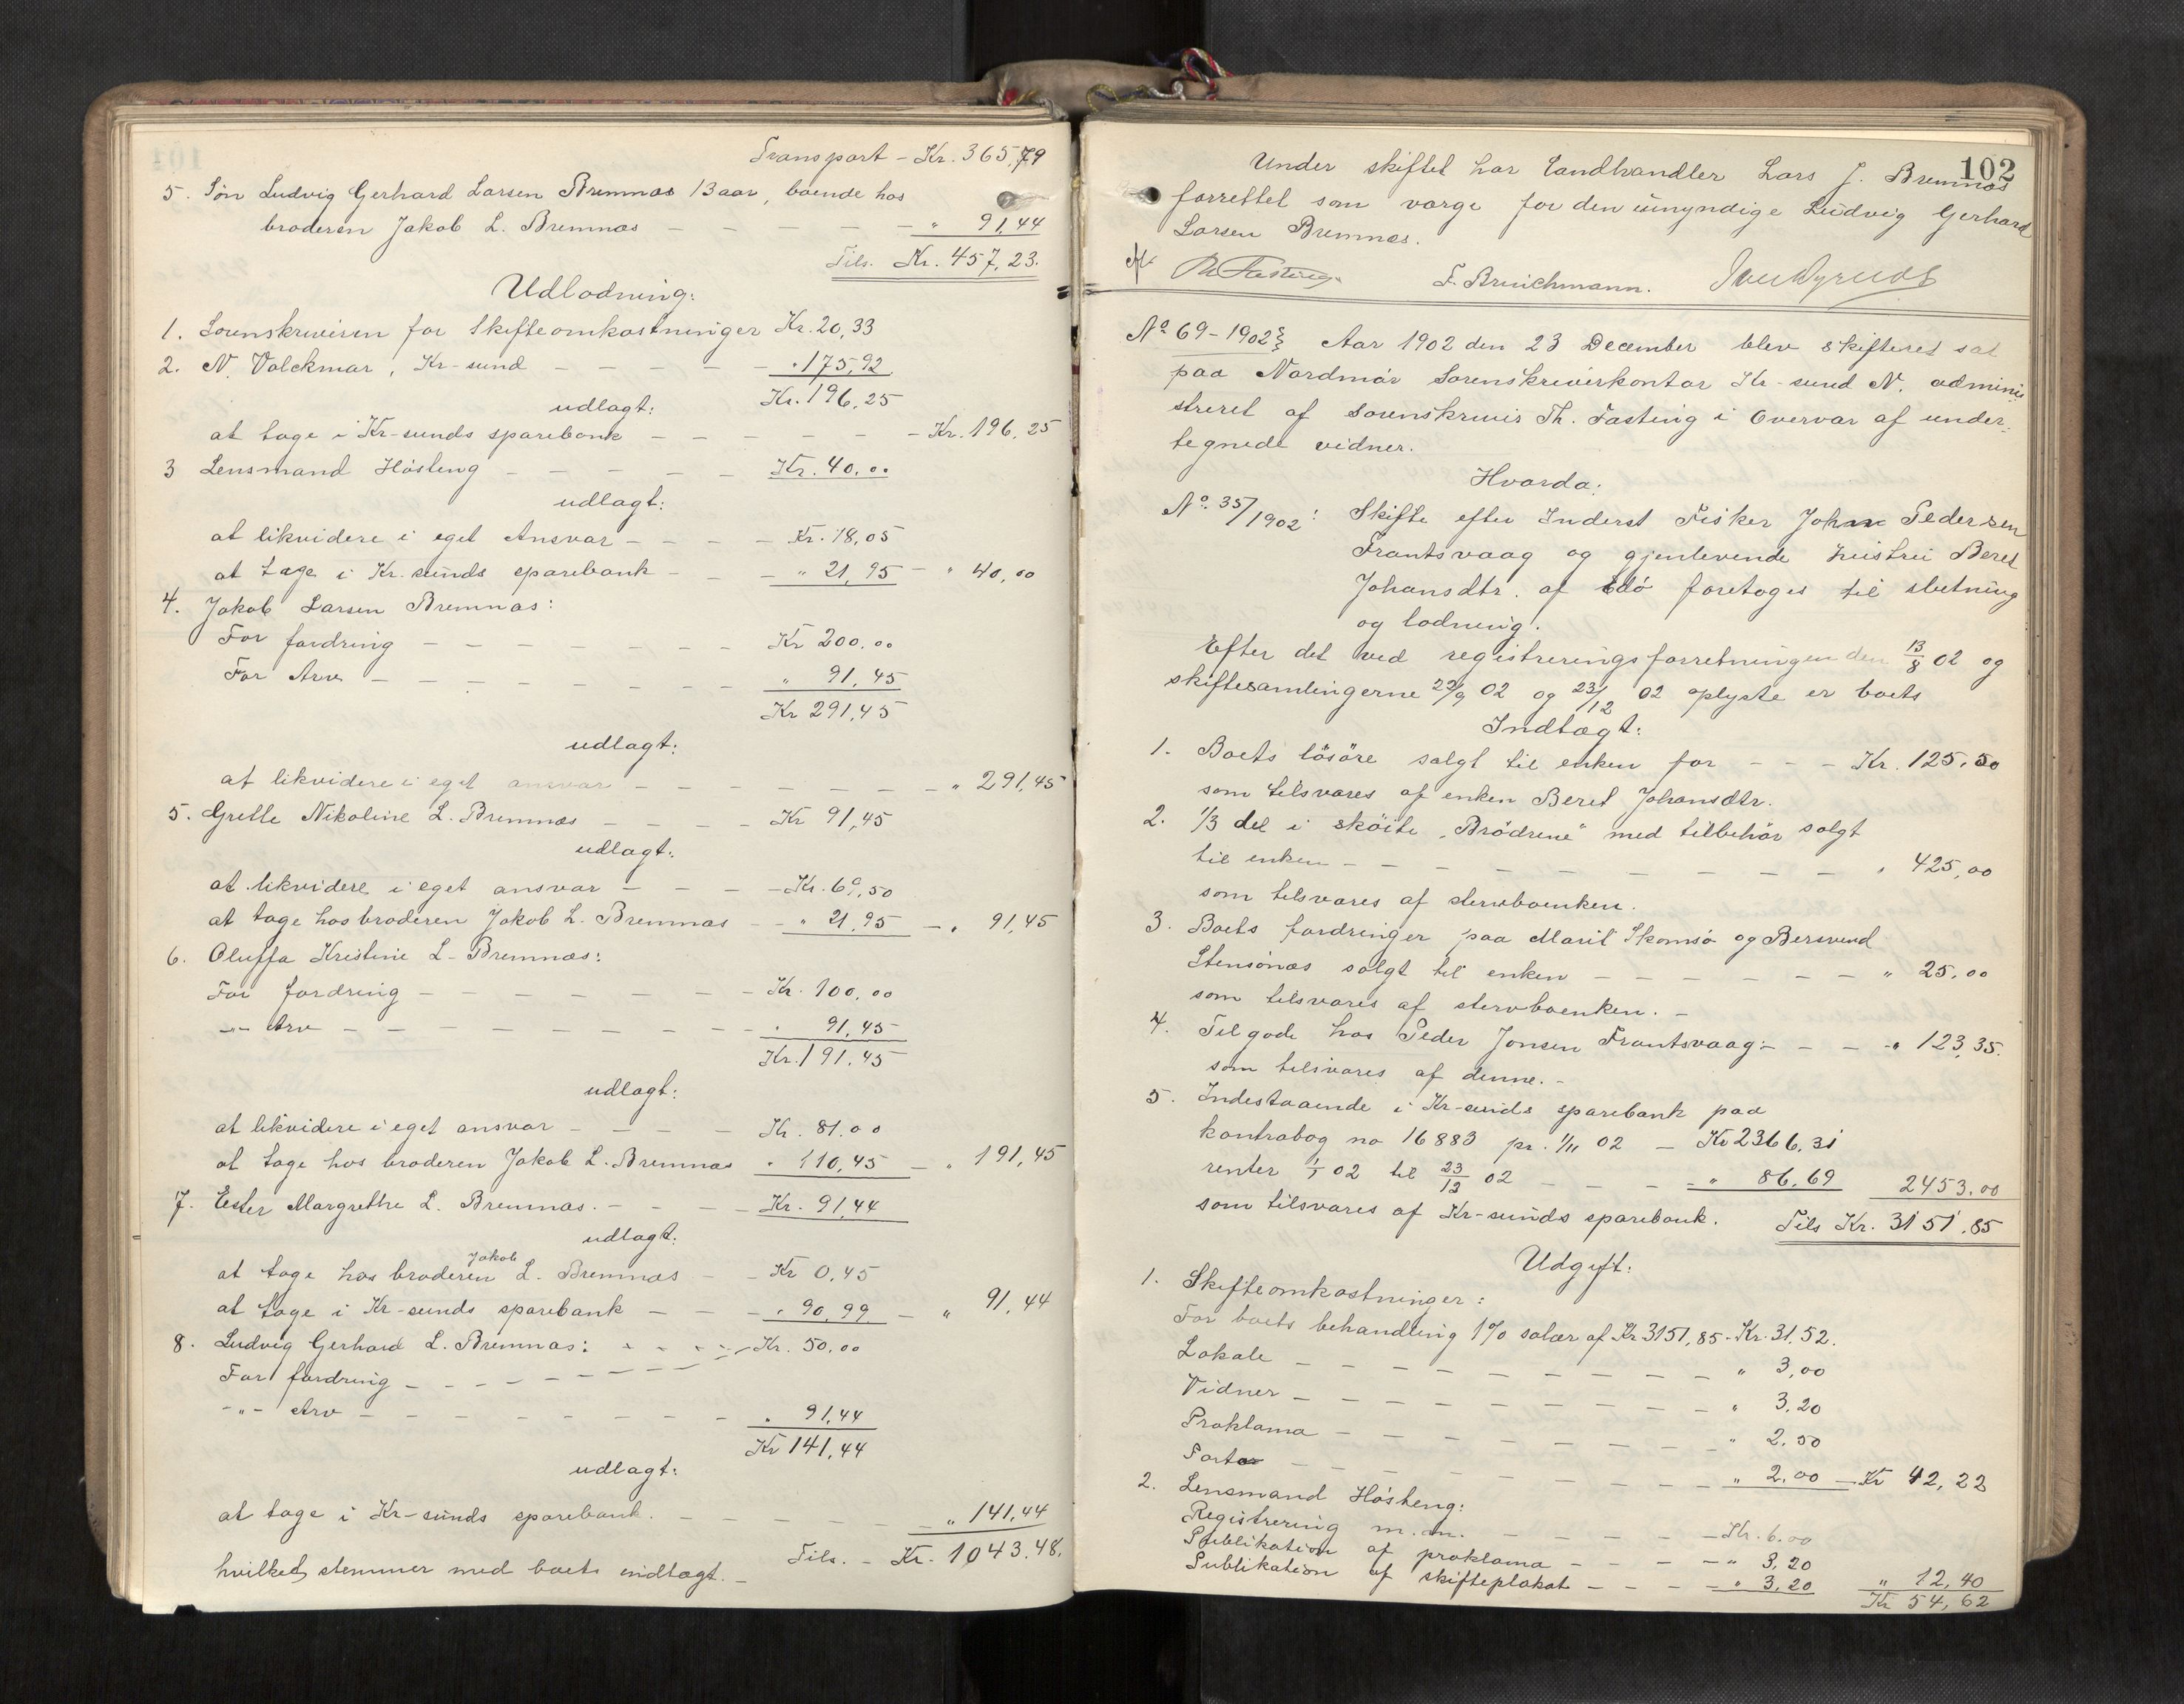 Transport - Kr. 365,79
5. Søn Ludvig Gerhard Larsen Bremnæs 13 aar, boende hos
broderen Jakob L. Bremnæs - - - - - " 91,44
Tils. Kr. 457,23.
Udlodning:
1. Sorenskriveren for Skifteomkostninger Kr. 20,33
2. N. Volckmar, Kr-sund - - - - - " 175,92
Kr. 196,25
udlagt:
at tage i Kr-sunds sparebank - - - - - - Kr. 196,25
3 Lensmand Høsteng - - - - - Kr. 40,00
udlagt:
at likvidere i eget Ansvar - - - - Kr. 18,05
at tage i Kr.sunds sparebank - - - " 21,95 - " 40,00
4. Jakob Larsen Bremnæs:
For fordring - - - - - - - Kr 200,00
For Arv - - - - - - - - " 91,45
Kr 291,45
udlagt:
at likvidere i eget ansvar - - - - - - - " 291,45
5. Grette Nikoline L. Bremnæs - - - - Kr 91,45
udlagt:
at likvidere i eget ansvar - - - - Kr. 69,50
at tage hos broderen Jakob L. Bremnæs - - " 21,95 - " 91,45
6. Oluffa Kristine L. Bremnæs:
For fordring - - - - - - - Kr. 100,00
-"- Arv - - - - - - - - - " 91,45
Kr. 191,45
udlagt:
at likvidere i eget ansvar - - - - Kr. 81.00
at tage hos broderen Jakob L. Bremnæs " 110,45 - " 191,45
7. Ester Margrethe L. Bremnæs. - - - - Kr. 91,44
udlagt:
at tage hos broderen Jakob L. Bremnæs - - Kr 0,45
at tage i Kr-sunds sparebank - - - " 90,99 - " 91,44
8. Ludvig Gerhard L. Bremnæs: - - - - Kr. 50,00
For fordring - - - - - - - -
-"- Arv - - - - - - - - " 91,44
Kr 141,44
udlagt:
at tage i Kr-sunds sparebank. - - - - - - " 141,44
hvilket stemmer med boets indtægt. - Tils. - Kr. 1043.48.
102
Under skiftet har Landhandler Lars J. Bremnæs
forrettet som værge for den umyndige Ludvig Gerhard
Larsen Bremnæs.
Th Fasting. F. Bruichmann.
No 69-1902 Aar 1902 den 23 December blev skifteret sat
paa Nordmør Sorenskriverkontor Kr-sund N. admini-
streret af sorenskriver Th. Fasting i Overvær af under-
tegnede vidner.
Hvorda:
No. 35/1902: Skifte efter Inderst Fisker Johan Pedersen
Frantsvaag og gjenlevende hustru Beret
Johansdtr. af Edø foretoges til slutning
og lodning.
Efter det ved registreringsforretningen den 13/8 02 og
skiftesamlingerne 22/9 02 og 23/12 02 oplyste er boets
Indtægt:
1. Boets løsøre solgt til enken for - - - Kr. 125,50
som tilsvares af enken Beret Johansdtr.
2. 1/3 del i skøite "Brødrene" med tilbehør solgt
til enken - - - - - - - - - " 425,00
som tilsvares af stervboenken.
3. Boets fordringer paa Marit Skomsø og Bersvend
Stensønæs solgt til enken - - - - - - " 25,00
som tilsvares af stervboenken. -
4. Tilgode hos Peder Jonsen Frantsvaag: - - - " 123,35.
som tilsvares af denne. -
5. Indestaaende i Kr-sunds sparebank paa
kontrabog no 16883 pr. 1/11 02 - Kr 2366,31
renter 1/1 02 til 23/12 02 - - - - " 86,69 2453.00
som tilsvares af Kr-sunds sparebank. Tils Kr. 3151,85
Udgift:
1. Skifteomkostninger:
For boets behandling 1% salær af Kr 3151,85 - Kr. 31,52.
Lokale - - - - - - - - - " 3,00
Vidner - - - - - - - - - " 3,20
Proklama - - - - - - - - " 2,50
Porto - - - - - - - - - " 2,00 - Kr 42,22
2. Lensmand Høsteng:
Registrering m.m. - - - - - Kr. 6.00
Publikation af proklama - - - - " 3,20
Publikation af skifteplakat - - - - " 3,20 " 12,40
Kr 54,62